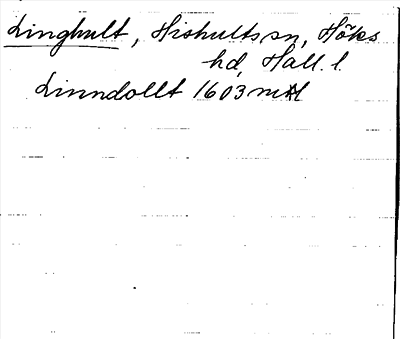 Linghult, Hishults sn, Höks
hd, Hall. l.
Linndollt 1603 mtl